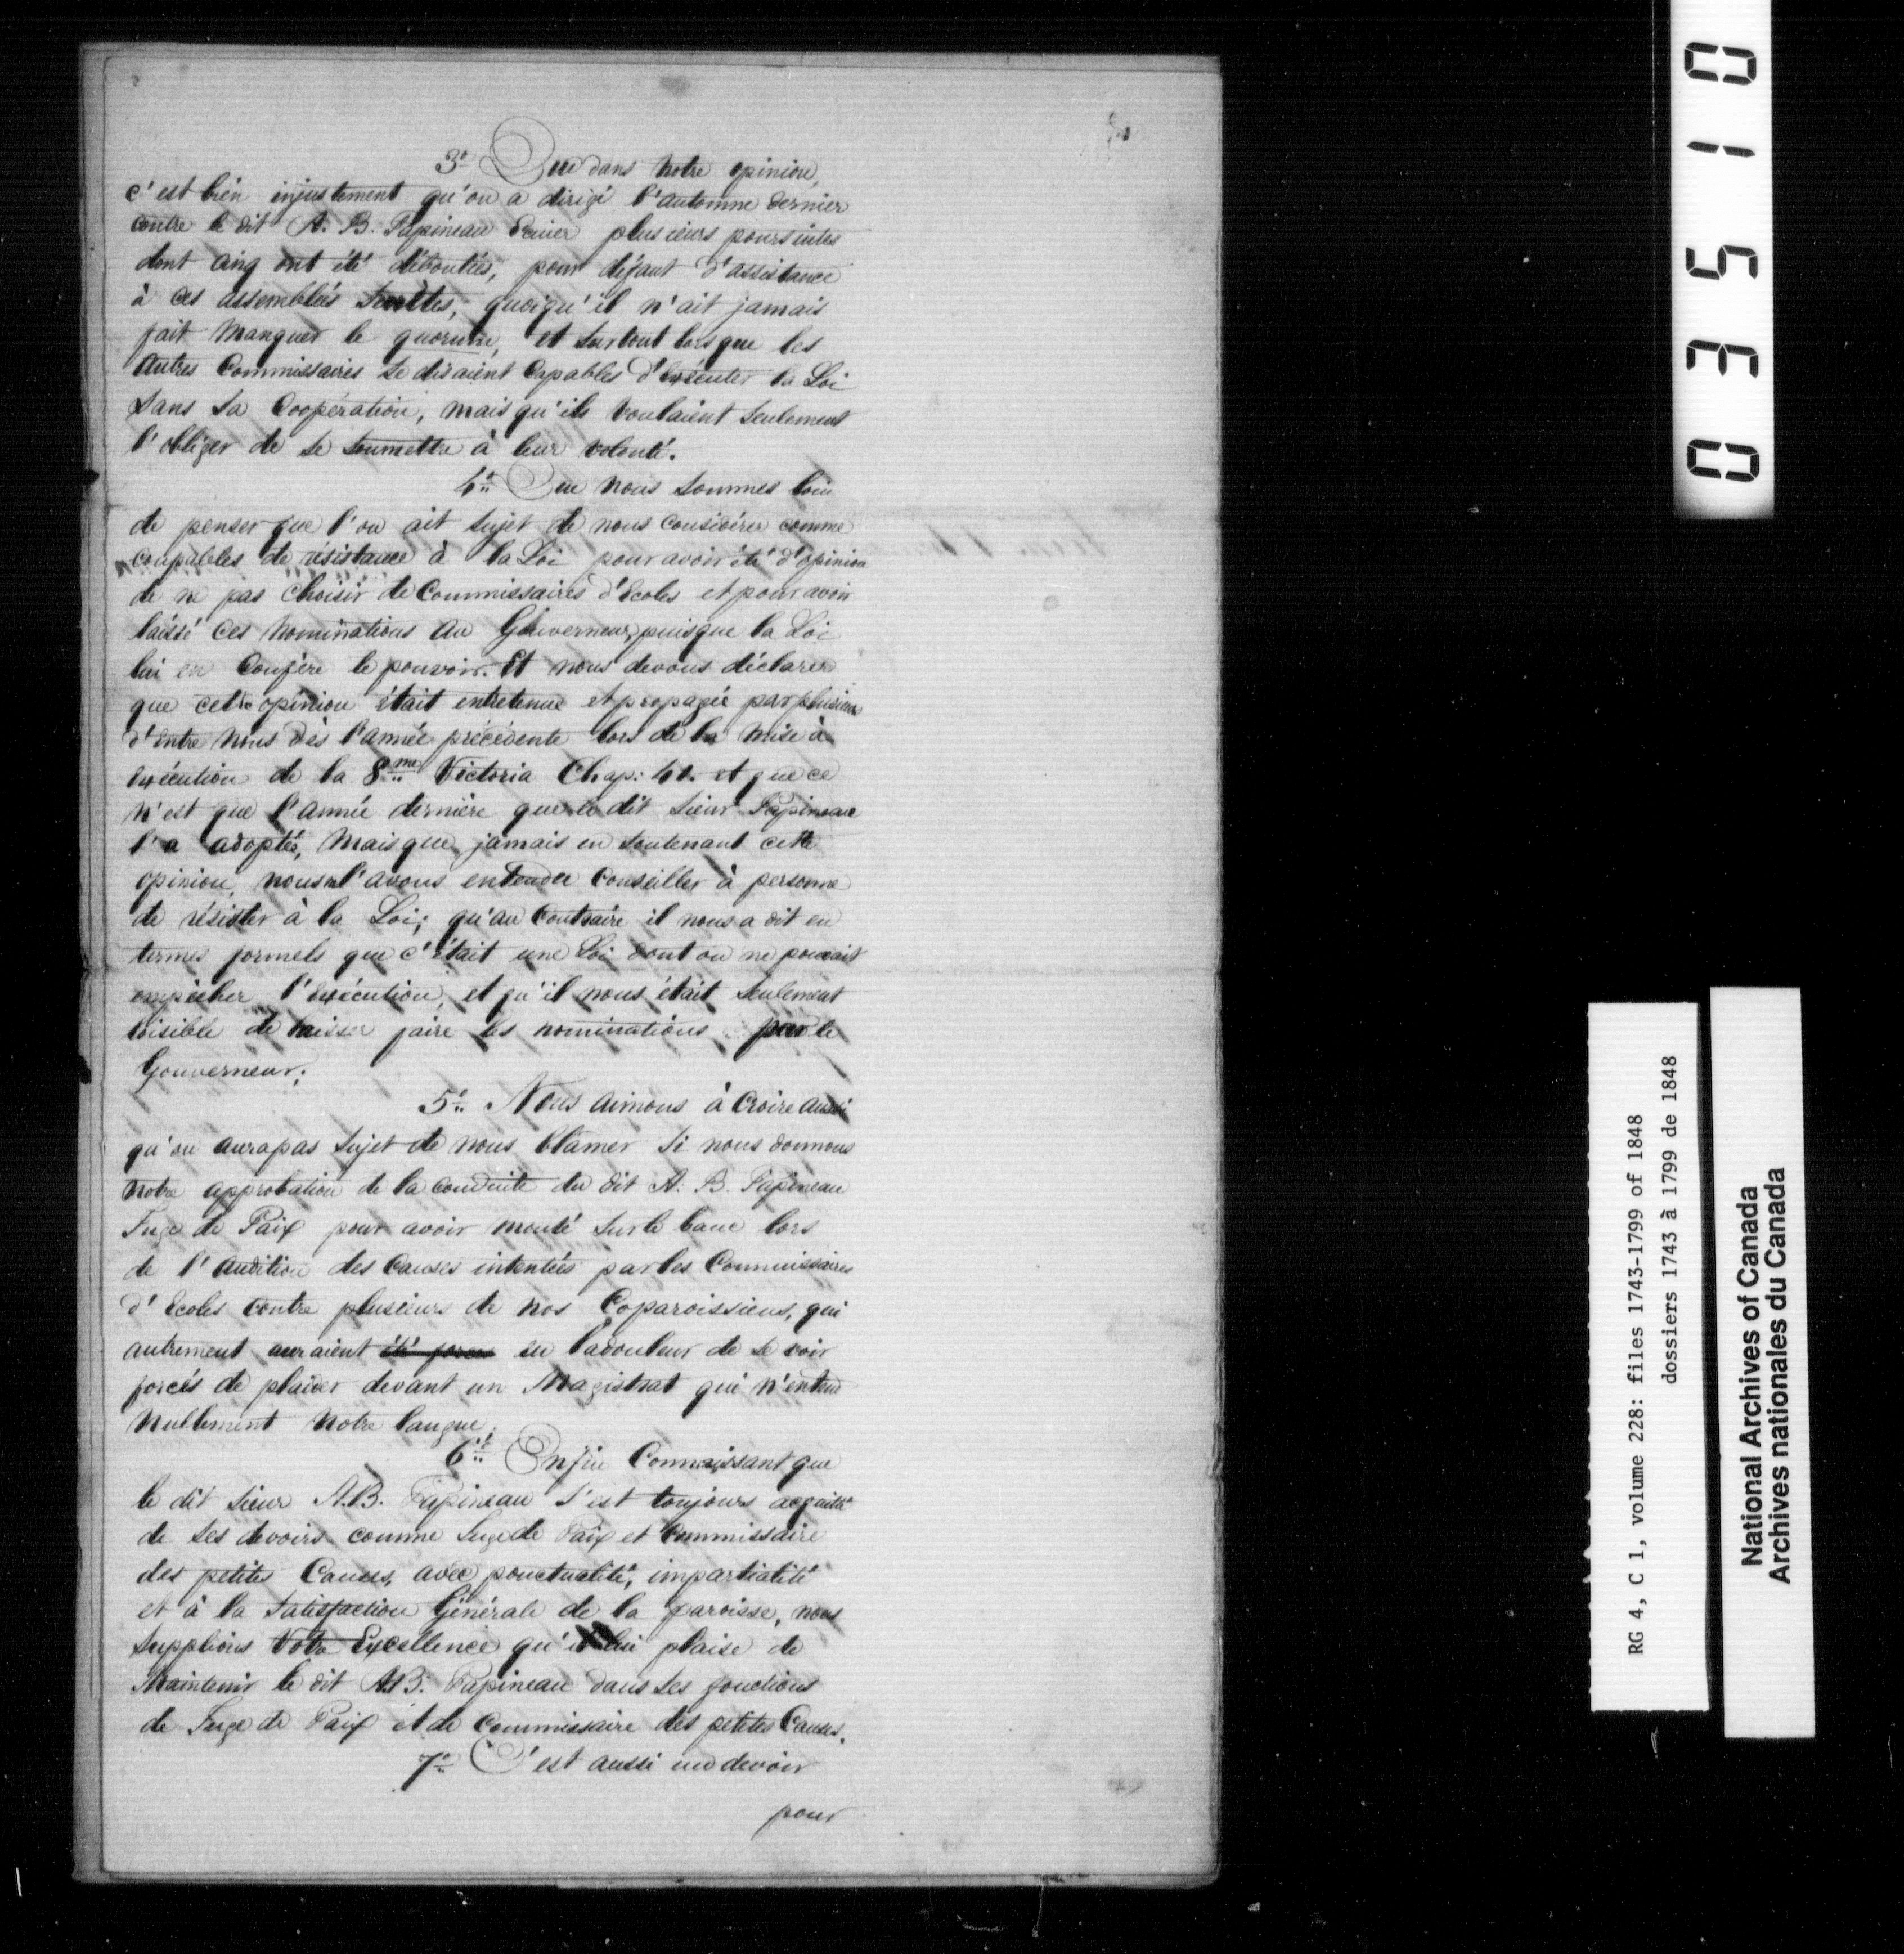 3° Que dans notre opinion,
c'est bien injustement qu'on a dirigé l'automne dernier
contre le dit A. B. Papineau Ecuier plusieurs poursuites
dont cinq ont été déboutées, pour défaut d'assistance
à ces assemblées secrètes, quoiqu'il n'ait jamais
fait manquer le quorum, et surtout lorsque les
autres Commissaires se disaient capables d'exécuter la Loi
sans sa Coopération, mais qu'ils voulaient seulement
l'obliger de se soumettre à leur volonté.
4° Que nous sommes loin
de penser que l'on ait sujet de nous considérer comme
coupables de résistance à la Loi pour avoir été d'opinion
de ne pas choisir de Commissaires d'Ecoles et pour avoir
laissé ces nominations au Gouverneur, puisque la Loi
lui en Confère le pouvoir. Et nous devons déclarer
que cette opinion était entretenue et propagée par plusieurs
d'entre nous dès l'année précédente lors de la mise à
exécution de la 8me Victoria Chap: 41. et que ce
n'est que l'année dernière que le dit Sieur Papineau
l'a adoptée, mais que jamais en soutenant cette
opinion, nous n'l'avons entendu Conseiller à personne
de résister à la Loi; qu'au Contraire il nous a dit en
termes formels que c'était une Loi dont on ne pouvait
empêcher l'exécution, et qu'il nous était seulement
loisible de laisser faire les nominations par le
Gouverneur;
5° Nous aimons à Croire aussi
qu'on aura pas sujet de nous blâmer si nous donnons
notre approbation de la conduite du dit A. B. Papineau
Juge de Paix pour avoir monté sur le banc lors
de l'audition des Causes intentées par les Commissaires
d'Ecoles contre plusieurs de nos Coparoissiens, qui
autrement auraient été forcés eu la douleur de se voir
forcés de plaider devant un Magistrat qui n'entend
nullement notre langue;
6° Enfin Connaissant que
le dit Sieur A. B. Papineau s'est toujours acquitté
de ses devoirs comme Juge de Paix et Commissaire
des petites Causes, avec ponctualité, impartialité
et à la Satisfaction Générale de la paroisse, nous
supplions Votre Excellence qu'il lui plaise de
Maintenir le dit A. B. Papineau dans ses fonctions
de Juge de Paix et de Commissaire des petites Causes.
7° C'est aussi un devoir
pour
03510
RG 4, C 1, volume 228: files 1743-1799 of 1848
dossiers 1743 à 1799 de 1848
National Archives of Canada
Archives nationales du Canada